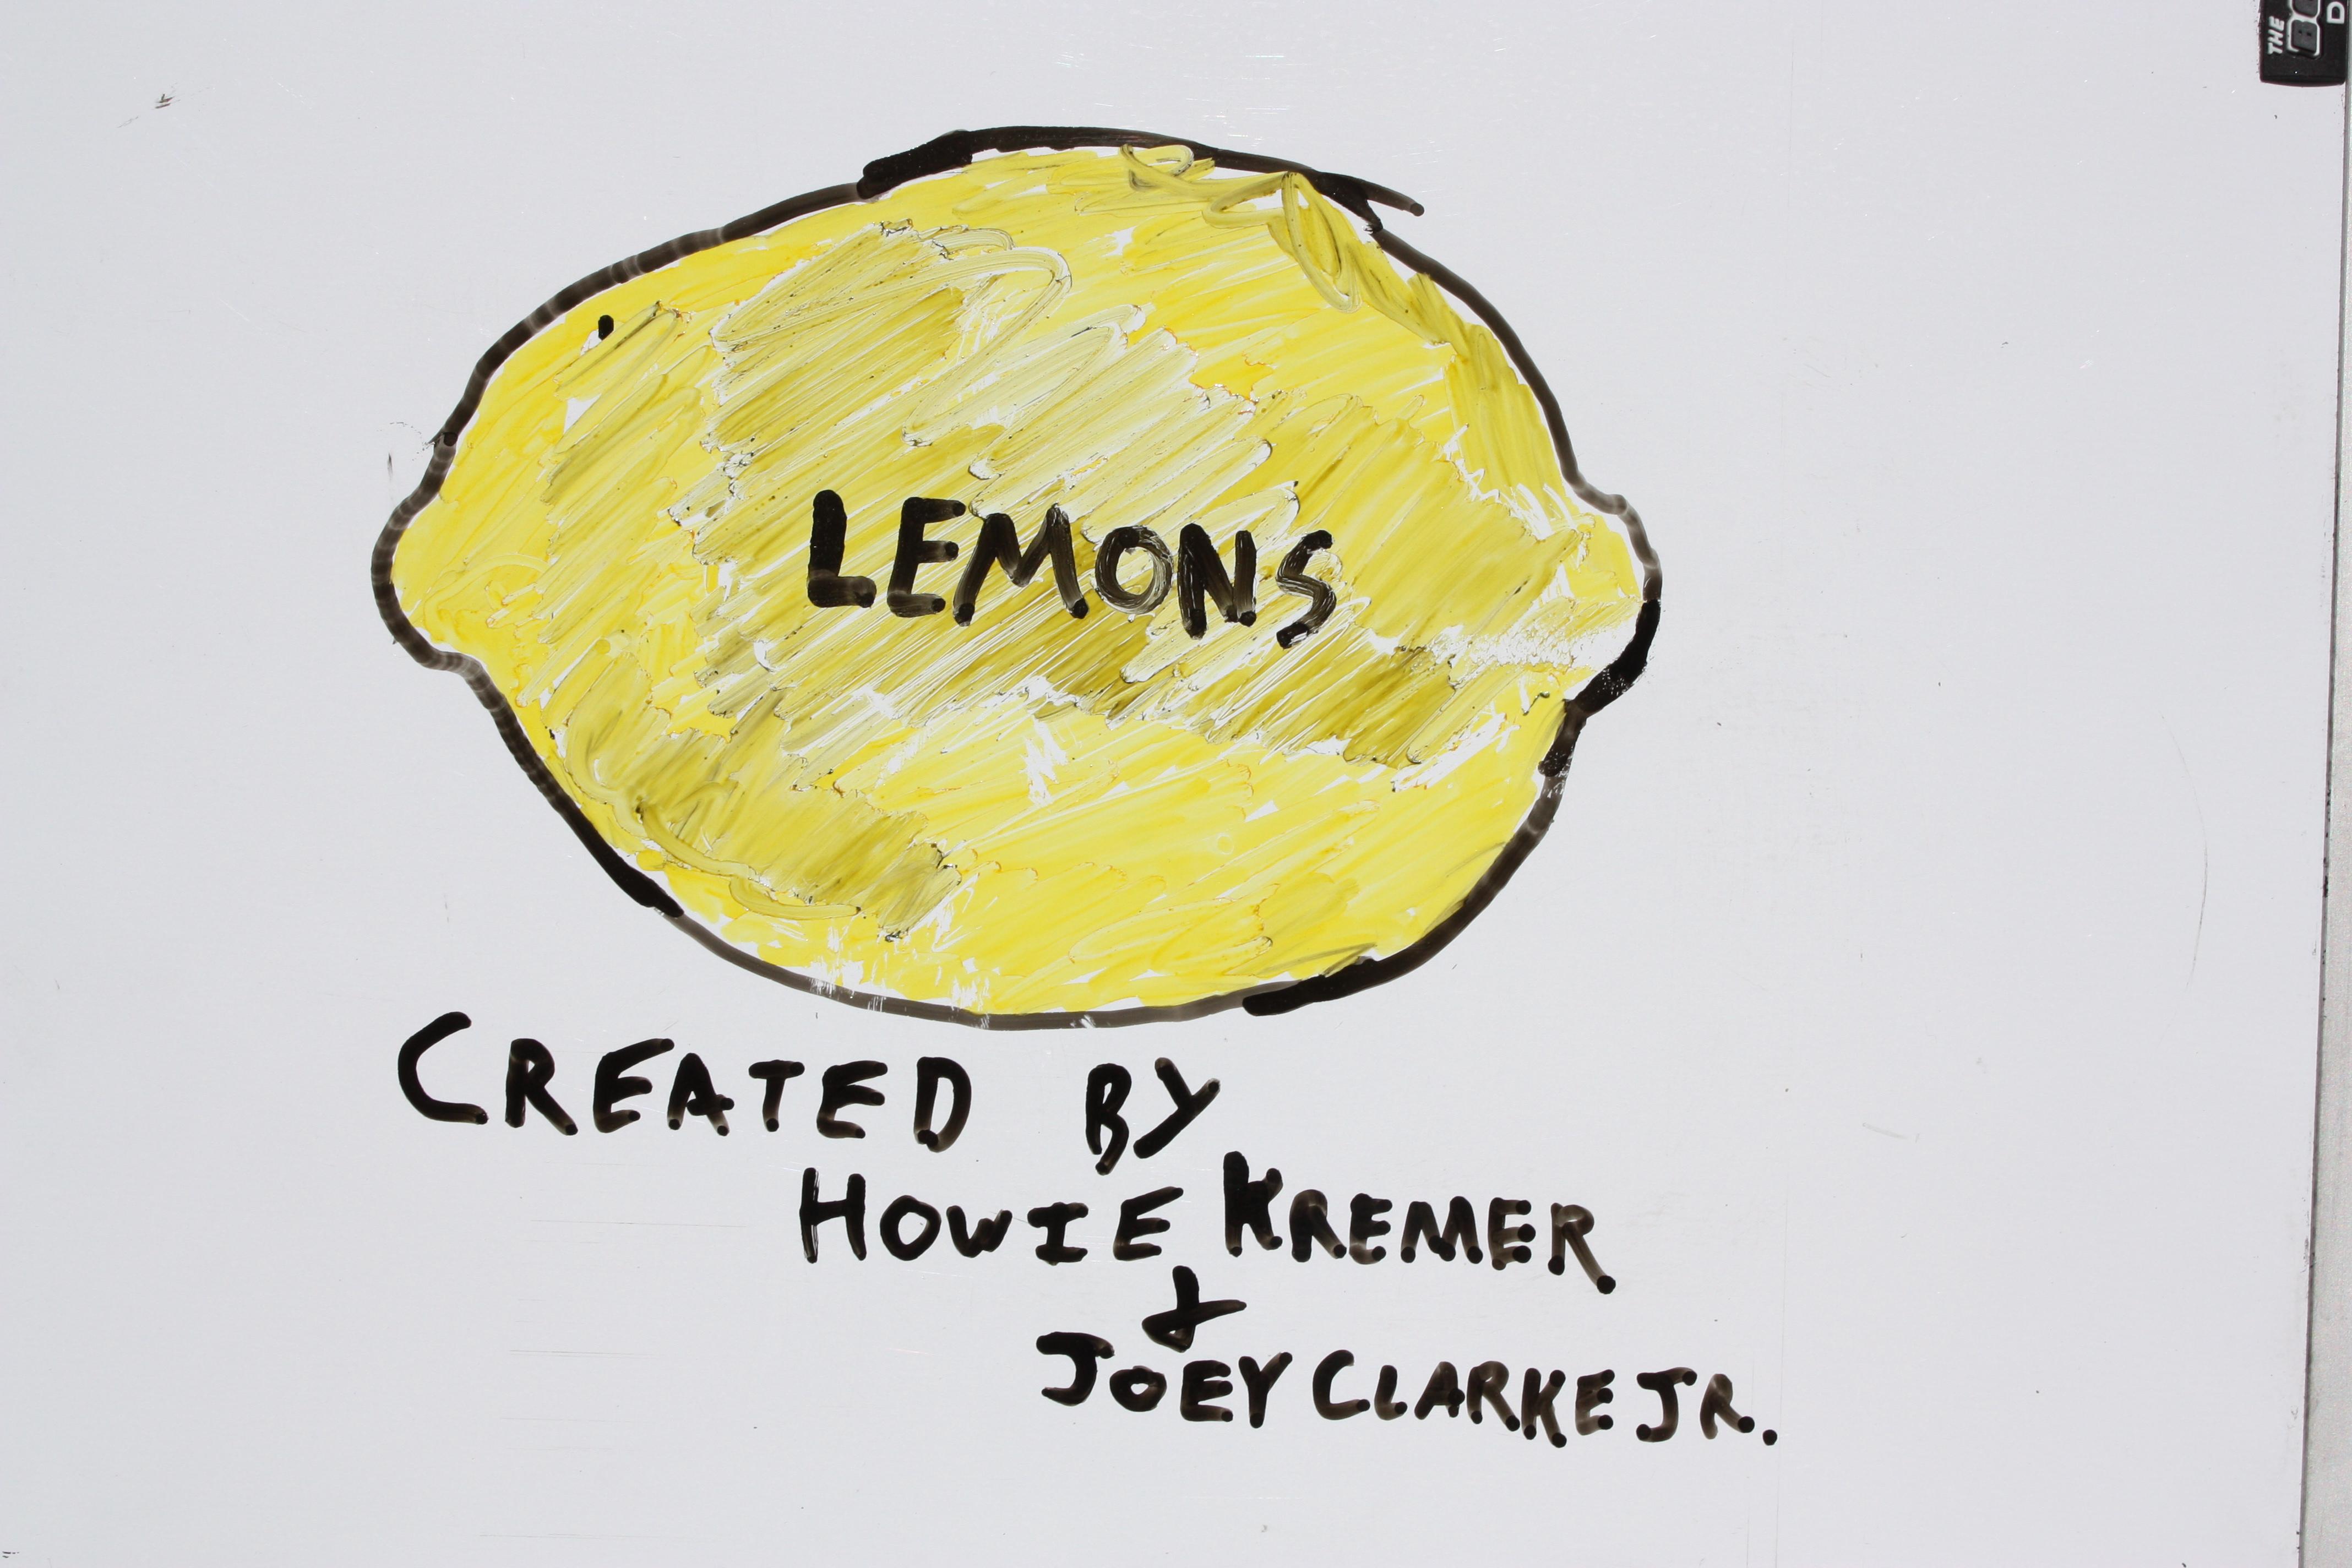 THE
LEMONS
CREATED BY
HOWIE KREMER
&
JOEY CLARKE JR.